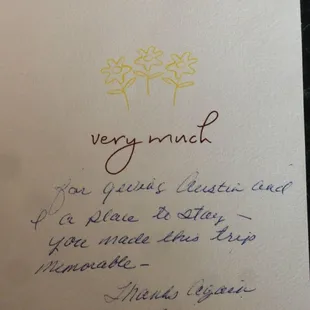 very much
for giving Austin and
I a place to stay –
you made this trip
memorable –
Thanks Again